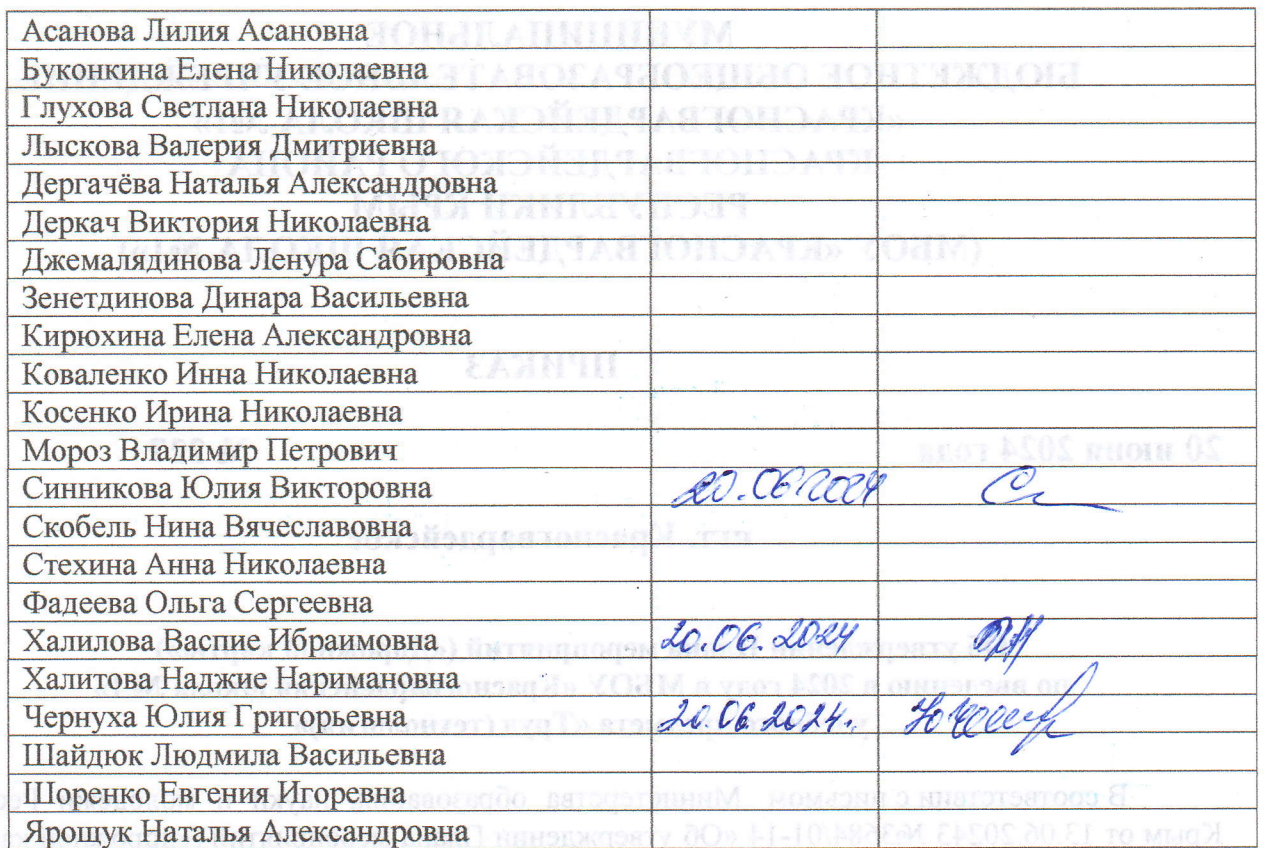 Асанова Лилия Асановна
Буконкина Елена Николаевна
Глухова Светлана Николаевна
Лыскова Валерия Дмитриевна
Дергачёва Наталья Александровна
Деркач Виктория Николаевна
Джемалядинова Ленура Сабировна
Зенетдинова Динара Васильевна
Кирюхина Елена Александровна
Коваленко Инна Николаевна
Косенко Ирина Николаевна
Мороз Владимир Петрович
Синникова Юлия Викторовна 20.06.2024
Скобель Нина Вячеславовна
Стехина Анна Николаевна
Фадеева Ольга Сергеевна
Халилова Васпие Ибраимовна 20.06.2024
Халитова Наджие Наримановна
Чернуха Юлия Григорьевна 20.06.2024г.
Шайдюк Людмила Васильевна
Шоренко Евгения Игоревна
Ярощук Наталья Александровна